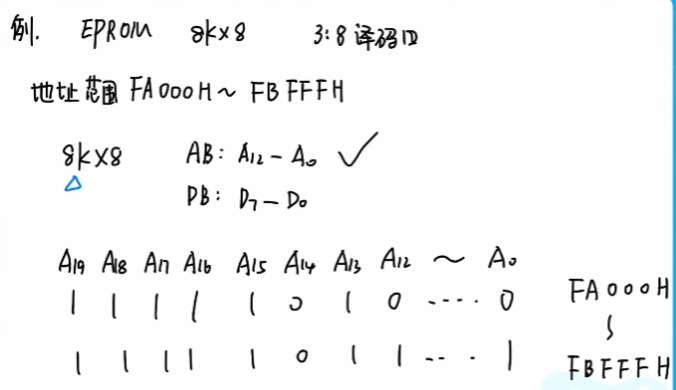 例. EPROM 8k×8 3:8译码口
地址范围 FA000H～FBFFFH
8k×8 AB: A₁₂-A₀ ✓
DB: D₇-D₀
A₁₉ A₁₈ A₁₇ A₁₆ A₁₅ A₁₄ A₁₃ A₁₂ ～ A₀
1 1 1 1 1 0 1 0 ····· 0 FA000H
～
1 1 1 1 1 0 1 1 ---· 1 FBFFFH